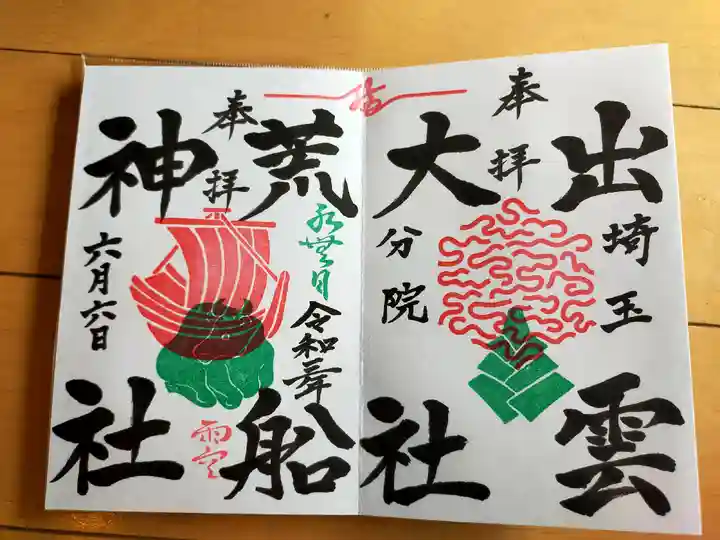 奉拝
出雲
埼玉
大社
分院
奉拝
荒船
水無月
令和三年
神社
六月六日
雨空